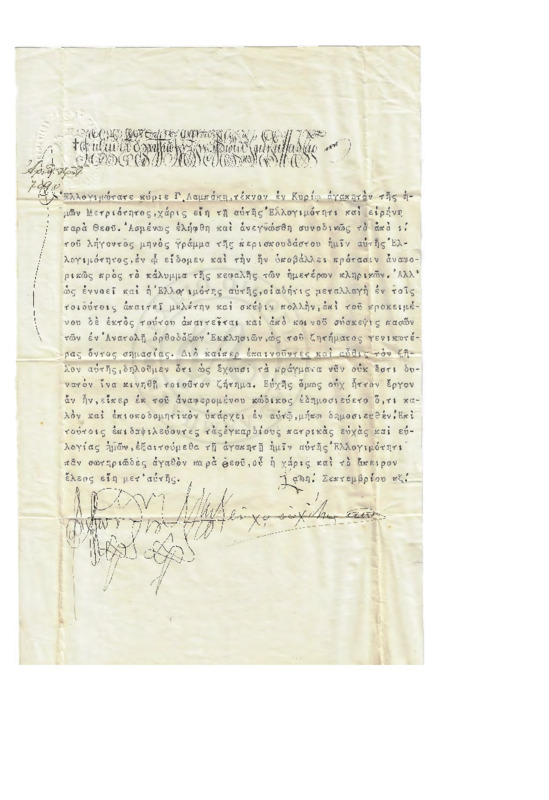 Ἐλλογιμώτατε κύριε Γ. Λαμπάκη, τέκνον ἐν Κυρίῳ ἀγαπητὸν τῆς ἡ-
μῶν Μετριότητος, χάρις εἴη τῇ αὐτῆς Ἐλλογιμότητι καὶ εἰρήνη
παρὰ Θεοῦ. Ἀσμένως ἐλήφθη καὶ ἀνεγνώσθη συνοδικῶς τὸ ἀπὸ
τοῦ λήγοντος μηνὸς γράμμα τῆς περισπουδάστου ἡμῖν αὐτῆς Ἐλ-
λογιμότητος, ἐν ᾧ εἴδομεν καὶ τὴν ἣν ὑποβάλλει πρότασιν ἀναφο-
ρικῶς πρὸς τὸ κάλυμμα τῆς κεφαλῆς τῶν ἡμετέρων κληρικῶν. Ἀλλ'
ὡς ἐννοεῖ καὶ ἡ Ἐλλογιμότης αὐτῆς, οἱαδήτις μεταλλαγὴ ἐν τοῖς
τοιούτοις ἀπαιτεῖ μελέτην καὶ σκέψιν πολλήν, ἐπὶ τοῦ προκειμέ-
νου δὲ ἐκτὸς τούτου ἀπαιτεῖται καὶ ἀπὸ κοινοῦ σύσκεψις πασῶν
τῶν ἐν Ἀνατολῇ ὀρθοδόξων Ἐκκλησιῶν, ὡς τοῦ ζητήματος γενικωτέ-
ρας ὄντος σημασίας. Διὸ καίπερ ἐπαινοῦντες καὶ αὖθις τὸν ζῆ-
λον αὐτῆς, δηλοῦμεν ὅτι ὡς ἔχουσι τὰ πράγματα νῦν οὐκ ἔστι δυ-
νατὸν ἵνα κινηθῇ τοιοῦτον ζήτημα. Εὐχῆς ὅμως οὐχ ἧττον ἔργον
ἂν ἦν, εἴπερ ἐκ τοῦ ἀναφερομένου κώδικος ἐδημοσιεύετο ὅ,τι κα-
λὸν καὶ ἐποικοδομητικὸν ὑπάρχει ἐν αὐτῷ, μήπω δημοσιευθέν. Ἐπὶ
τούτοις ἐπιδαψιλεύοντες τὰς ἐγκαρδίους πατρικὰς εὐχὰς καὶ εὐ-
λογίας ἡμῶν, ἐξαιτούμεθα τῇ ἀγαπητῇ ἡμῖν αὐτῆς Ἐλλογιμότητι
πᾶν σωτηριῶδες ἀγαθὸν παρὰ Θεοῦ, οὗ ἡ χάρις καὶ τὸ ἄπειρον
ἔλεος εἴη μετ' αὐτῆς. Σεπτεμβρίου